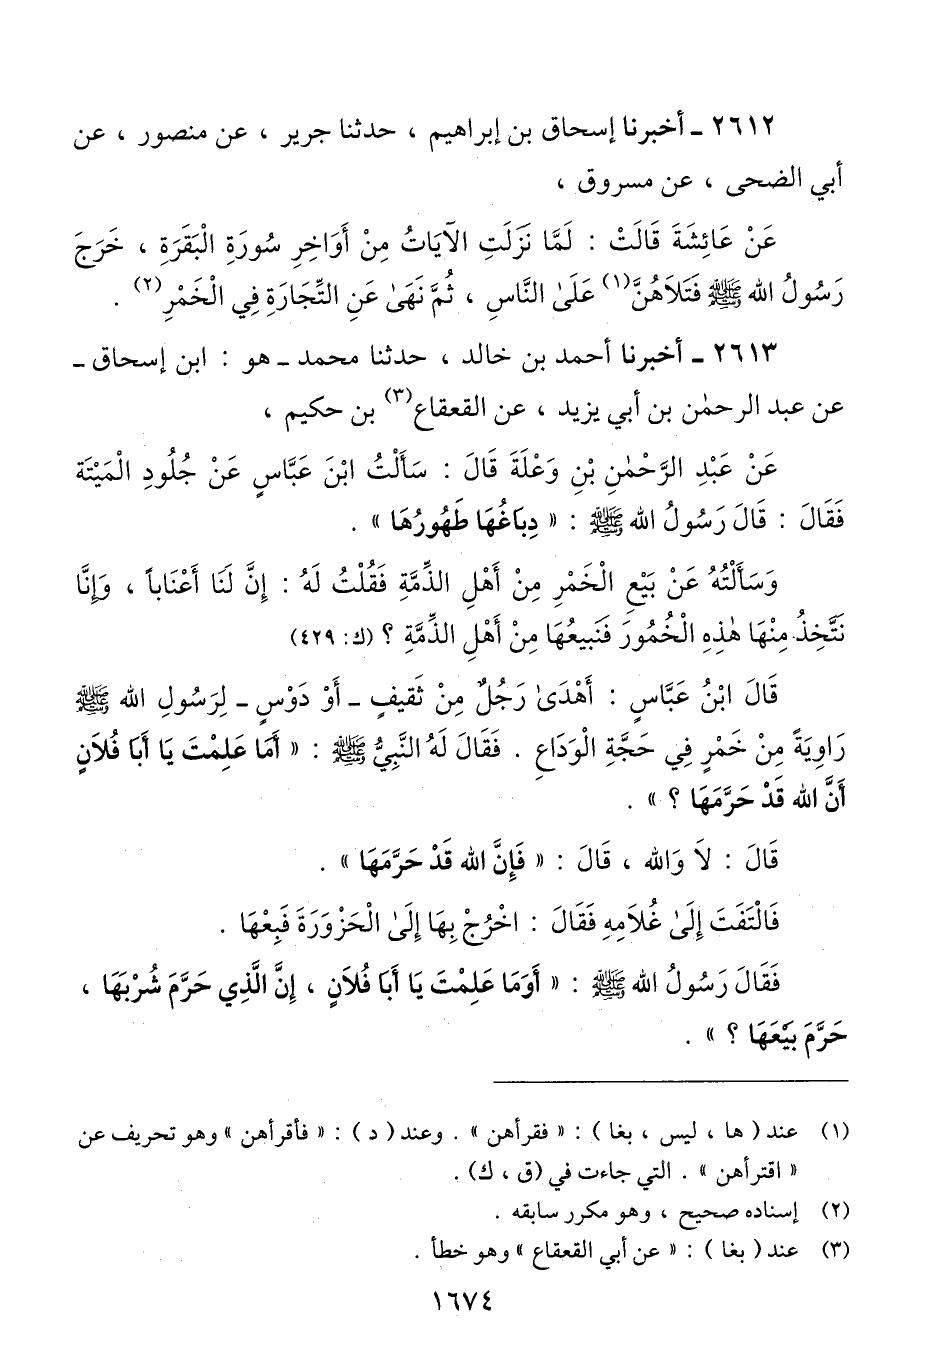 ٢٦١٢ ـ أخبرنا إسحاق بن إبراهيم ، حدثنا جرير ، عن منصور ، عن
أبي الضحى ، عن مسروق ،
عَنْ عَائِشَةَ قَالَتْ : لَمَّا نَزَلَتِ الآيَاتُ مِنْ أَوَاخِرِ سُورَةِ الْبَقَرَةِ ، خَرَجَ
رَسُولُ الله ﷺ فَتَلاَهُنَّ(١) عَلَىٰ النَّاسِ ، ثُمَّ نَهَىٰ عَنِ التِّجَارَةِ فِي الْخَمْرِ(٢) .
٢٦١٣ ـ أخبرنا أحمد بن خالد ، حدثنا محمد ـ هو : ابن إسحاق ـ
عن عبد الرحمٰن بن أبي يزيد ، عن القعقاع(٣) بن حكيم ،
عَنْ عَبْدِ الرَّحْمٰنِ بْنِ وَعْلَةَ قَالَ : سَأَلْتُ ابْنَ عَبَّاسٍ عَنْ جُلُودِ الْمَيْتَة
فَقَالَ : قَالَ رَسُولُ الله ﷺ : « دِبَاغُهَا طَهُورُهَا » .
وَسَأَلْتُهُ عَنْ بَيْعِ الْخَمْرِ مِنْ أَهْلِ الذِّمَّةِ فَقُلْتُ لَهُ : إِنَّ لَنَا أَعْنَاباً ، وَإِنَّا
نَتَّخِذُ مِنْهَا هٰذِهِ الْخُمُورَ فَنَبِيعُهَا مِنْ أَهْلِ الذِّمَّةِ ؟ (ك: ٤٢٩)
قَالَ ابْنُ عَبَّاسٍ : أَهْدَىٰ رَجُلٌ مِنْ ثَقِيفٍ ـ أَوْ دَوْسٍ ـ لِرَسُولِ الله ﷺ
رَاوِيَةً مِنْ خَمْرٍ فِي حَجَّةِ الْوَدَاعِ . فَقَالَ لَهُ النَّبِيُّ ﷺ : « أَمَا عَلِمْتَ يَا أَبَا فُلَانٍ
أَنَّ الله قَدْ حَرَّمَهَا ؟ » .
قَالَ : لاَ وَالله ، قَالَ : « فَإِنَّ الله قَدْ حَرَّمَهَا » .
فَالْتَفَتَ إِلَىٰ غُلاَمِهِ فَقَالَ : اخْرُجْ بِهَا إِلَىٰ الْحَزْوَرَةَ فَبِعْهَا .
فَقَالَ رَسُولُ الله ﷺ : « أَوَمَا عَلِمْتَ يَا أَبَا فُلَانٍ ، إِنَّ الَّذِي حَرَّمَ شُرْبَهَا ،
حَرَّمَ بَيْعَهَا ؟ » .
(١) عند ( ها ، ليس ، بغا ) : « فقرأهن » . وعند ( د ) : « فأقرأهن » وهو تحريف عن
« اقترأهن » . التي جاءت في (ق ، ك) .
(٢) إسناده صحيح ، وهو مكرر سابقه .
(٣) عند ( بغا ) : « عن أبي القعقاع » وهو خطأ .
١٦٧٤